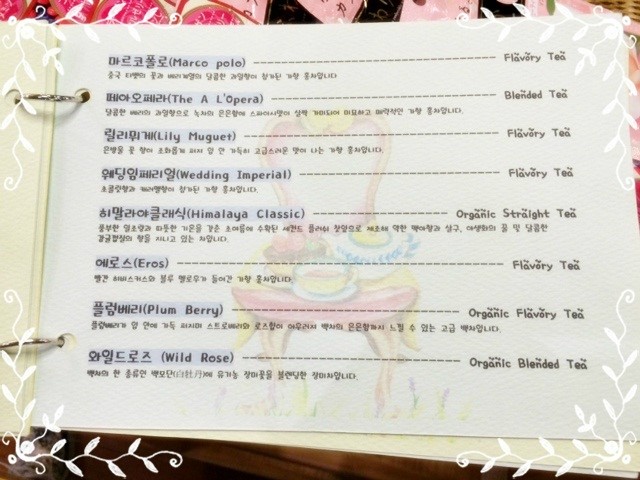 마르코폴로(Marco polo) Flavory Tea
중국 티벳의 꽃과 베리계열의 달콤한 과일향이 첨가된 가향 홍차입니다
떼아오페라(The A L'Opera) Blended Tea
달콤한 베리의 과일향으로 녹차의 은은함에 스파이시맛이 살짝 가미되어 미묘하고 매력적인 가향 홍차입니다.
릴리뮈게(Lily Muguet) Flavory Tea
은방울 꽃 향이 조화롭게 퍼지 입 안 가득히 고급스러운 맛이 나는 가향 홍차입니다.
웨딩임페리얼(Wedding Imperial) Flavory Tea
초콜릿향과 캐러멜향이 첨가된 가향 홍차입니다.
히말라야클래식(Himalaya Classic) Organic Straight Tea
풍부한 일조량과 따뜻한 기온을 갖춘 초여름에 수확된 세컨드 플러쉬 찻잎으로 제조해 약한 맥아향과 살구, 야생화의 꿀 및 달콤한
감귤껍질의 향을 지니고 있는 차입니다.
에로스(Eros) Flavory Tea
빨간 히비스커스와 블루 멜로우가 들어간 가향 홍차입니다.
플럼베리(Plum Berry) Organic Flavory Tea
플럼베리가 입 안에 가득 퍼지며 스트로베리와 로즈향이 어우러져 백차의 은은함까지 느낄 수 있는 고급 백차입니다.
와일드로즈 (Wild Rose) Organic Blended Tea
백차의 한 종류인 백모단(白牡丹)에 유기농 장미꽃을 블렌딩한 장미차입니다.